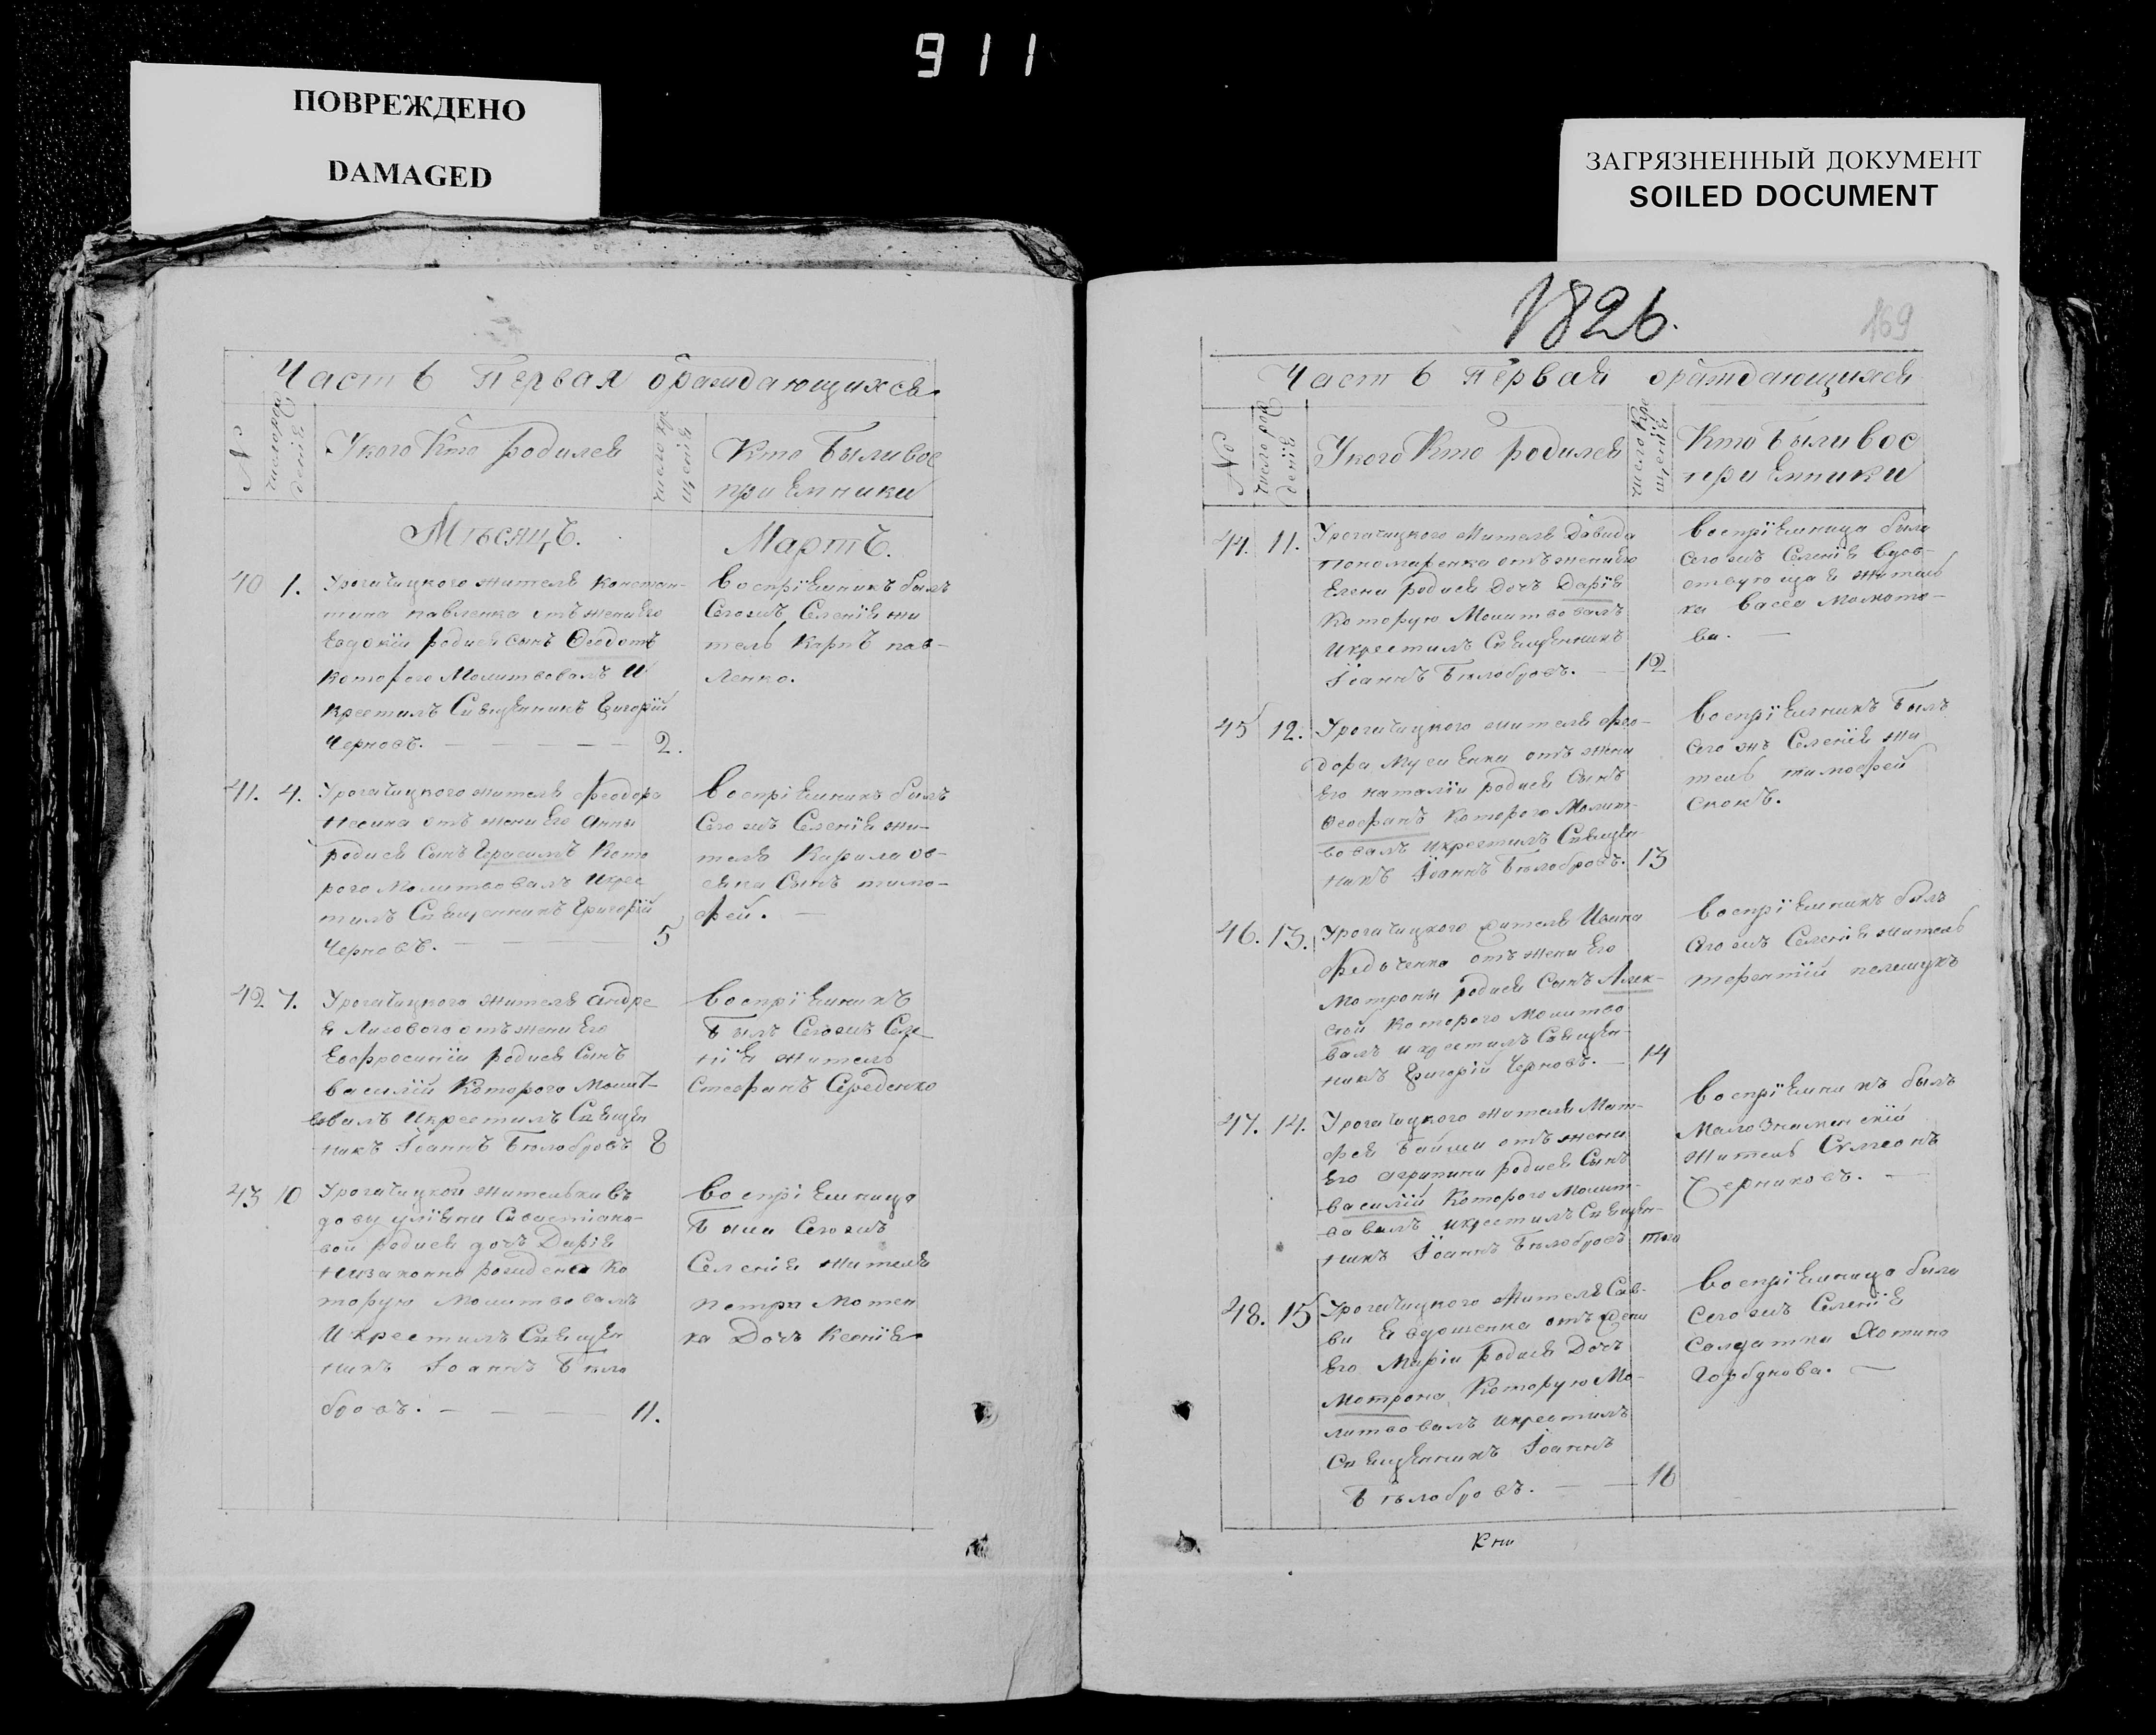 911
ПОВРЕЖДЕНО
DAMAGED
ЗАГРЯЗНЕННЫЙ ДОКУМЕНТ
SOILED DOCUMENT
Часть первая ораждающихся.
№
число рож
денїя
Укого Кто родился
число кре
щенїя
Кто были вос
приемники
Мѣсяцъ.
Мартъ.
40 1. Урогачицкого жителя констан-
тина павленка отъ жени Его
Евдокїи родися сынъ Ѳеодотъ
которого Молитвовалъ И
крестилъ Священникъ Григорїй
Черновъ. — — — — — 2.
воспрїемникъ былъ
Сегожъ Селенїя жи
тель Карпъ пав-
ленко.
41. 4. Урогачицкого жителя феодора
Несина отъ жени Его анны
родися Сынъ Герасимъ Кото
рого Молитвовалъ Икрес
тилъ Священникъ Григорїй
Черновъ. — — — 5
воспрїемникъ былъ
Сегожъ Селенїя жи-
теля Кирила
Сынъ тимо-
фей. —
42 7. Урогачицкого жителя андре
я Лизового отъ жени Его
Евфросинїи родися Сынъ
василїй Которого Молит-
вовалъ Икрестилъ Священ
никъ Іоаннъ Бѣлобровъ 8
воспрїемникъ
былъ Сегожъ Селе
нїя житель
Стефанъ Середенко
43 10 Урогачицкой жительки в
довы улїяни Севастїяно-
вой родися дочъ Дарїя
низаконно рожденa Ко
торую Молитвовалъ
Икрестилъ Священ
никъ Іоаннъ Бѣло
бровъ. — — — 11.
воспрїемница
была Сегожъ
Селенїя жителя
петра Мотен
ка Дочъ Ксенїя.
1826.
169
Часть первая ораждающихся
№
число рож
денїя
Укого Кто родился
число кре
щенїя
Кто были вос
приемники
44. 11. Урогачицкого жителя давида
пономаренка отъ жени Его
Елени родися Дочъ Дарїя
Которую Молитвовалъ
Икрестилъ Священникъ
Іоаннъ Бѣлобровъ. — 12
воспрїемница была
Сегожъ Селенїя вдов-
ствующая житель
ка васса Момото-
ва. —
45 12. Урогачицкого жителя фео-
дора Мусиенка отъ жени
Его наталїи родися Сынъ
Ѳеофанъ Которого Молит-
вовалъ Икрестилъ Священ
никъ Іоаннъ Бѣлобровъ. 13
воспрїемникъ былъ
сегожъ Селенїя жи
тель тимофей
Снокъ.
46. 13. Урогачицкого жителя Ивана
федьченка отъ жени Его
Мотроны родися Сынъ Алек-
сѣй Которого Молитво
валъ икрестилъ Священ-
никъ Григорїй Черновъ. — 14
воспрїемникъ былъ
Сегожъ Селенїя житель
терентїй пелешукъ
47. 14. Урогачицкого жителя Мат-
фея байши отъ жени
Его агрипини родися Сынъ
василїй Которого Молит-
вовалъ икрестилъ Священ-
никъ Іоаннъ Бѣлобровъ того
воспрїемникъ былъ
Мало Знаменскїй
житель Сумеонъ
Черниковъ. —
48. 15 Урогачицкого жителя Сав-
ви Явдошенка отъ жени
Его Марїи родися Дочъ
Мотрона Которую Мо-
литвовалъ икрестилъ
Священникъ Іоаннъ
Бѣлобровъ. — — 16
воспрїемница была
сегожъ Селенїя
солдатка Хотина
Горбунова. —